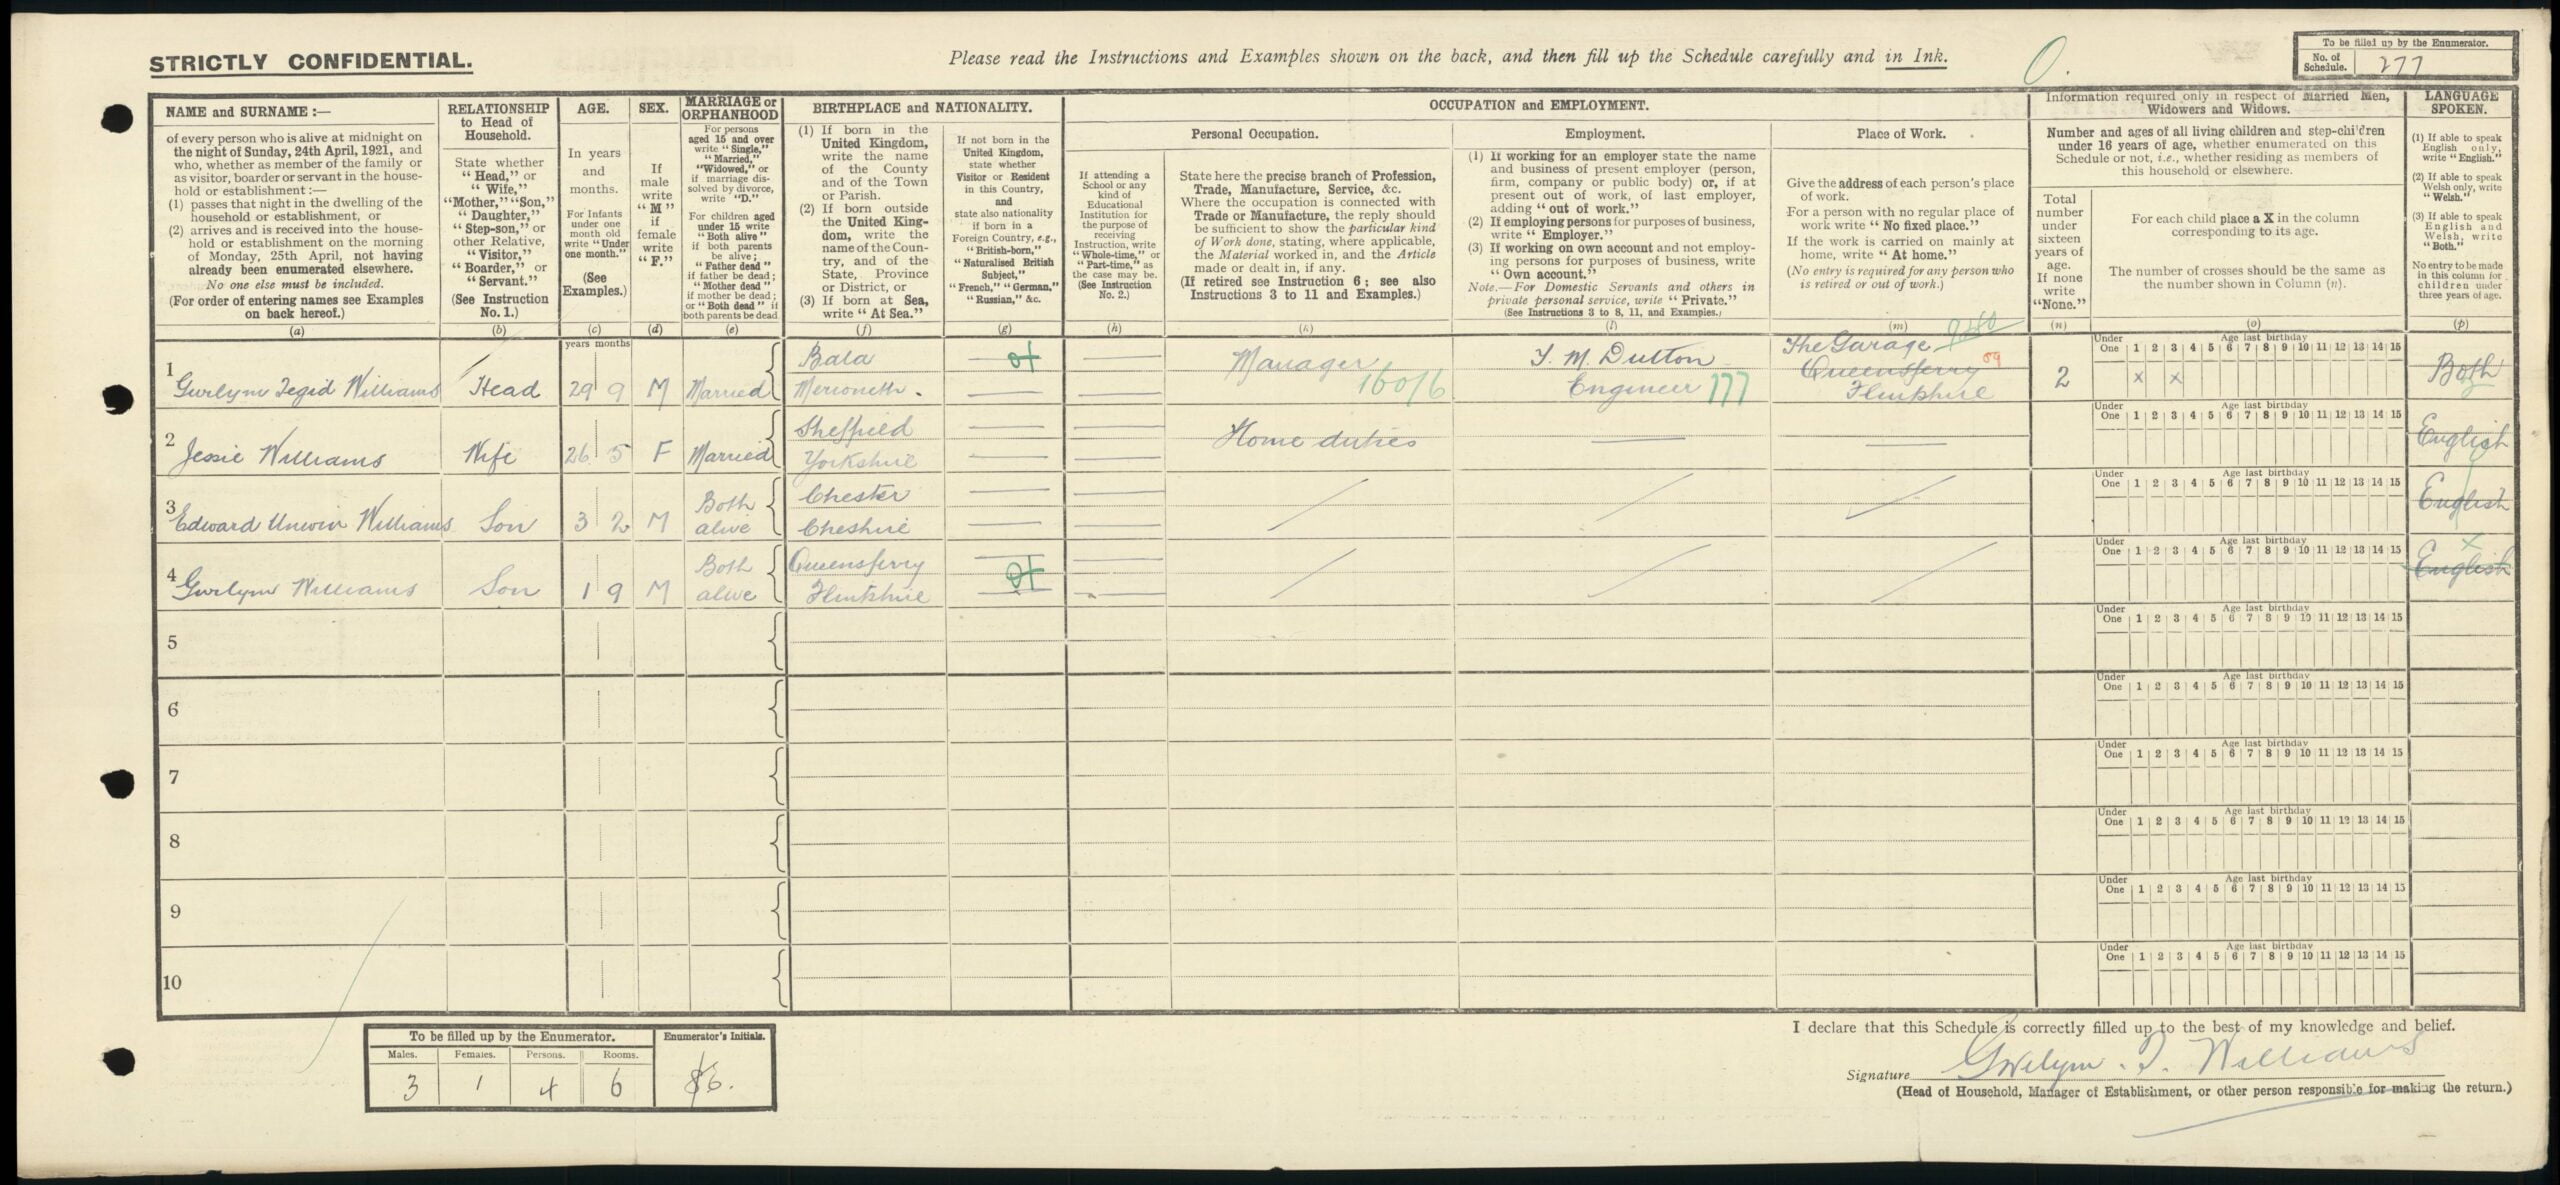 STRICTLY CONFIDENTIAL.
Please read the Instructions and Examples shown on the back, and then fill up the Schedule carefully and in Ink.
To be filled up by the Enumerator.
No. of Schedule. 277
NAME and SURNAME :—
of every person who is alive at midnight on
the night of Sunday, 24th April, 1921, and
who, whether as member of the family or
as visitor, boarder or servant in the house-
hold or establishment :—
(1) passes that night in the dwelling of the
household or establishment, or
(2) arrives and is received into the house-
hold or establishment on the morning
of Monday, 25th April, not having
already been enumerated elsewhere.
No one else must be included.
(For order of entering names see Examples
on back hereof.)
(a)
RELATIONSHIP
to Head of
Household.
State whether
"Head," or
"Wife,"
"Mother," "Son,"
"Daughter,"
"Step-son," or
other Relative,
"Visitor,"
"Boarder," or
"Servant."
(See Instruction
No. 1.)
(b)
AGE.
In years
and
months.
For Infants
under one
month old
write "Under
one month."
(See
Examples.)
(c)
SEX.
If
male
write
"M"
if
female
write
"F."
(d)
MARRIAGE or
ORPHANHOOD
For persons
aged 15 and over
write "Single,"
"Married,"
"Widowed," or
if marriage dis-
solved by divorce,
write "D."
For children aged
under 15 write
"Both alive"
if both parents
be alive ;
"Father dead"
if father be dead ;
"Mother dead"
if mother be dead ;
or "Both dead" if
both parents be dead
(e)
BIRTHPLACE and NATIONALITY.
(1) If born in the
United Kingdom,
write the name
of the County
and of the Town
or Parish.
(2) If born outside
the United King-
dom, write the
name of the Coun-
try, and of the
State, Province
or District, or
(3) If born at Sea,
write "At Sea."
(f)
If not born in the
United Kingdom,
state whether
Visitor or Resident
in this Country,
and
state also nationality
if born in a
Foreign Country, e.g.,
"British-born,"
"Naturalised British
Subject,"
"French," "German,"
"Russian," &c.
(g)
OCCUPATION and EMPLOYMENT.
If attending a
School or any
kind of
Educational
Institution for
the purpose of
receiving
Instruction, write
"Whole-time," or
"Part-time," as
the case may be.
(See Instruction
No. 2.)
(h)
Personal Occupation.
State here the precise branch of Profession,
Trade, Manufacture, Service, &c.
Where the occupation is connected with
Trade or Manufacture, the reply should
be sufficient to show the particular kind
of Work done, stating, where applicable,
the Material worked in, and the Article
made or dealt in, if any.
(If retired see Instruction 6 ; see also
Instructions 3 to 11 and Examples.)
(k)
Employment.
(1) If working for an employer state the name
and business of present employer (person,
firm, company or public body) or, if at
present out of work, of last employer,
adding "out of work."
(2) If employing persons for purposes of business,
write "Employer."
(3) If working on own account and not employ-
ing persons for purposes of business, write
"Own account."
Note.—For Domestic Servants and others in
private personal service, write "Private."
(See Instructions 3 to 8, 11, and Examples.)
(l)
Place of Work.
Give the address of each person's place
of work.
For a person with no regular place of
work write "No fixed place."
If the work is carried on mainly at
home, write "At home."
(No entry is required for any person who
is retired or out of work.)
(m)
Information required only in respect of Married Men,
Widowers and Widows.
Number and ages of all living children and step-children
under 16 years of age, whether enumerated on this
Schedule or not, i.e., whether residing as members of
this household or elsewhere.
Total
number
under
sixteen
years of
age.
If none
write
"None."
(n)
For each child place a X in the column
corresponding to its age.
The number of crosses should be the same as
the number shown in Column (n).
(o)
LANGUAGE
SPOKEN.
(1) If able to speak
English only,
write "English."
(2) If able to speak
Welsh only, write
"Welsh."
(3) If able to speak
English and
Welsh, write
"Both."
No entry to be made
in this column for
children under
three years of age.
(p)
years months
1 Gwilym Tegid Williams Head 29 9 M Married Bala Merioneth. Manager 160/6 T. M. Dutton Engineer 777 The Garage Queensferry Flintshire 2 x x Both
2 Jessie Williams Wife 26 5 F Married Sheffield Yorkshire Home duties English
3 Edward Unwin Williams Son 3 2 M Both alive Chester Cheshire English
4 Gwilym Williams Son 1 9 M Both alive Queensferry Flintshire English
5
6
7
8
9
10
Under One Age last birthday 1 2 3 4 5 6 7 8 9 10 11 12 13 14 15
Under One Age last birthday 1 2 3 4 5 6 7 8 9 10 11 12 13 14 15
Under One Age last birthday 1 2 3 4 5 6 7 8 9 10 11 12 13 14 15
Under One Age last birthday 1 2 3 4 5 6 7 8 9 10 11 12 13 14 15
Under One Age last birthday 1 2 3 4 5 6 7 8 9 10 11 12 13 14 15
Under One Age last birthday 1 2 3 4 5 6 7 8 9 10 11 12 13 14 15
Under One Age last birthday 1 2 3 4 5 6 7 8 9 10 11 12 13 14 15
Under One Age last birthday 1 2 3 4 5 6 7 8 9 10 11 12 13 14 15
Under One Age last birthday 1 2 3 4 5 6 7 8 9 10 11 12 13 14 15
Under One Age last birthday 1 2 3 4 5 6 7 8 9 10 11 12 13 14 15
To be filled up by the Enumerator.
Males. Females. Persons. Rooms.
3 1 4 6
Enumerator's Initials.
I declare that this Schedule is correctly filled up to the best of my knowledge and belief.
Signature Gwilym. T. Williams
(Head of Household, Manager of Establishment, or other person responsible for making the return.)